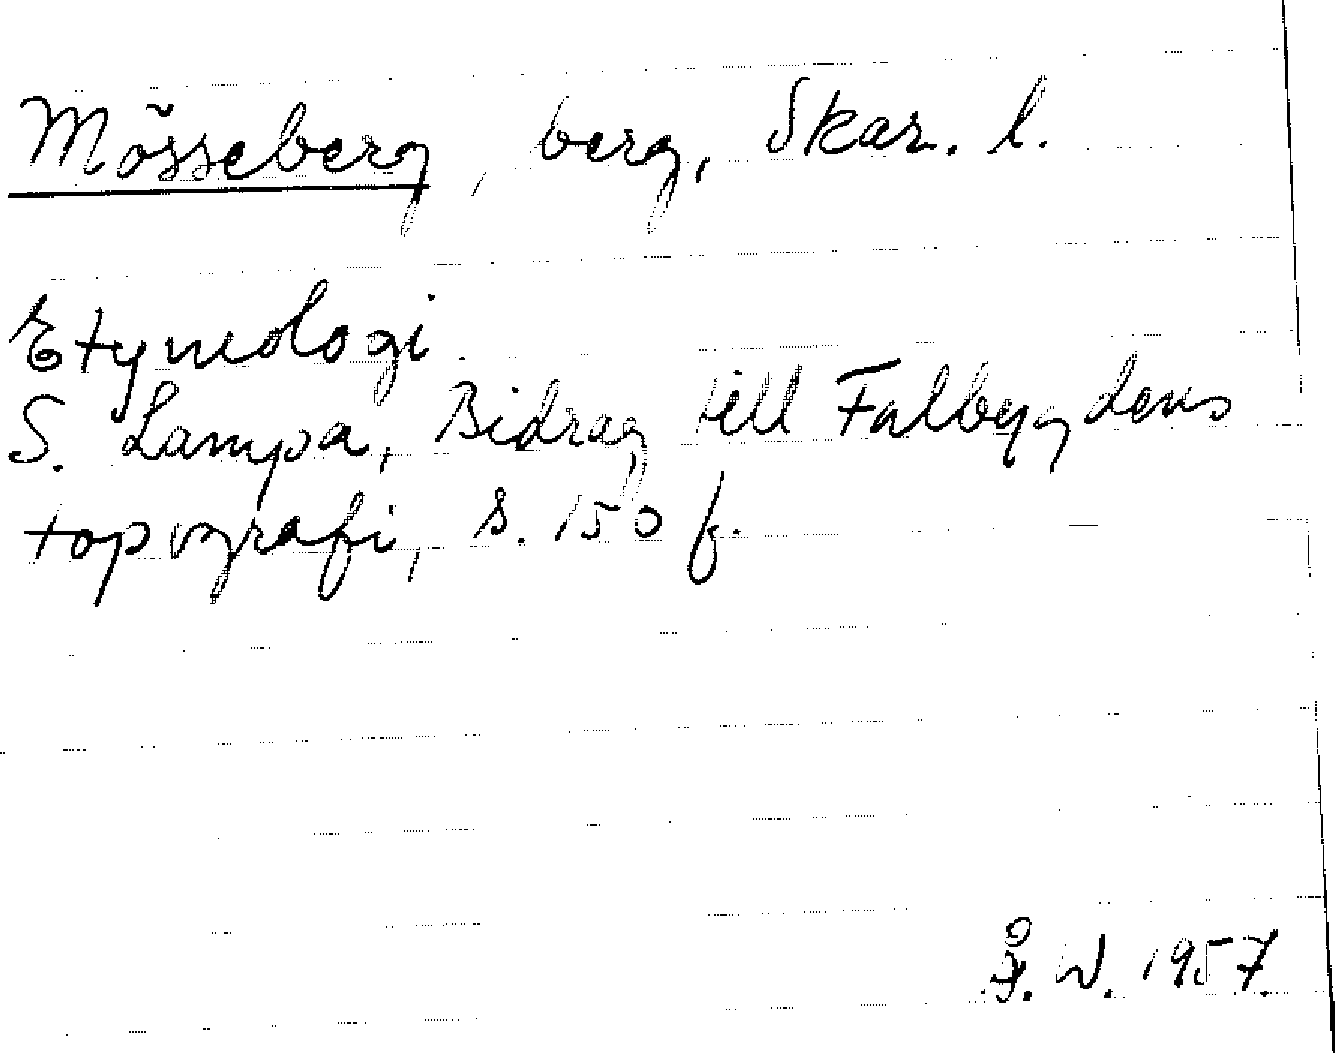 Mösseberg, berg, Skar. l.
Etymologi.
S. Lampa, Bidrag till Falbygdens
topografi, s. 150 f.
W. 1957.